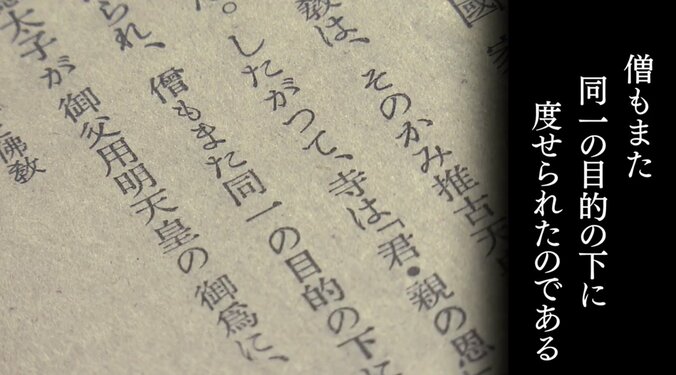 僧もまた
同一の目的の下に
度せられたのである
國
教は、そのかみ推古天
。したがつて、寺は「君・親の恩
られ、僧もまた同一の目的の下に
太子が御父用明天皇の御爲に、
佛教